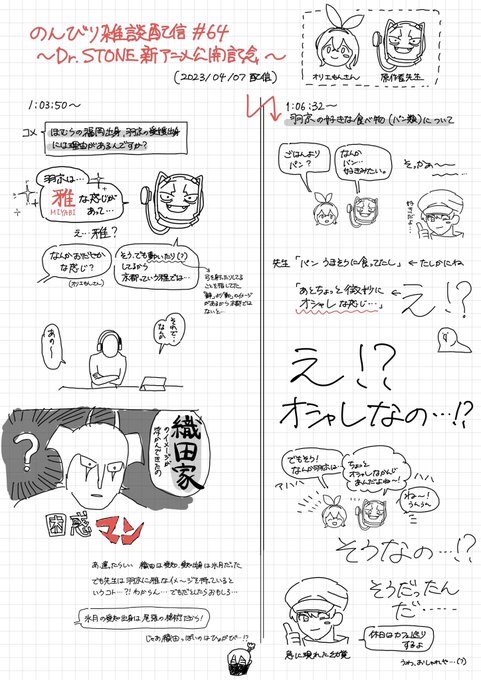 のんびり雑談配信 #64
～Dr.STONE新アニメ公開記念～
(2023/04/07 配信)
オリエもんさん
原作者先生
1:03:50～
コメ
ほむらの福岡出身、羽京の愛媛出身
には理由があるんですか?
羽京は…
雅な感じが
MIYABI
あって…
え…雅?
なんかおだやか
な感じ?
(オリエもんさん)
そう、でも動いたり(?)
してるから
京都っていう雅では…
それで…
なんか
あの～
?
織田家
のイメージが
浮かんできたの
困惑マン
でも先生は羽京に雅なイメージを持っていると
いうコト…?! わからん… でもだとしたらおもしろ…
氷月の愛知出身は尾張の槍術だから!
じゃあ織田っぽいのはひょがぴ…!?
1:06:32～
羽京の好きな食べ物(パン類)について
ごはんより
パン?
なんか
パン…
好きみたいな。
そっかぁ～
好きだよ
先生「パン うまそうに食ってたし」 ← たしかにね
「あとちょっと微妙に
オシャレな感じ…」 ← え!?
え!?
オシャレなの…!?
でもそう!
なんか羽京は
ちょっと
オシャレなかんじ
あんだよね～!
アハハ
ハハハ
ね～!
うんうん
そうなの…!?
そうだったん
だ……
休日はカフェ巡り
するよ
急に現れた幻覚
うわ、おしゃれや…(?)